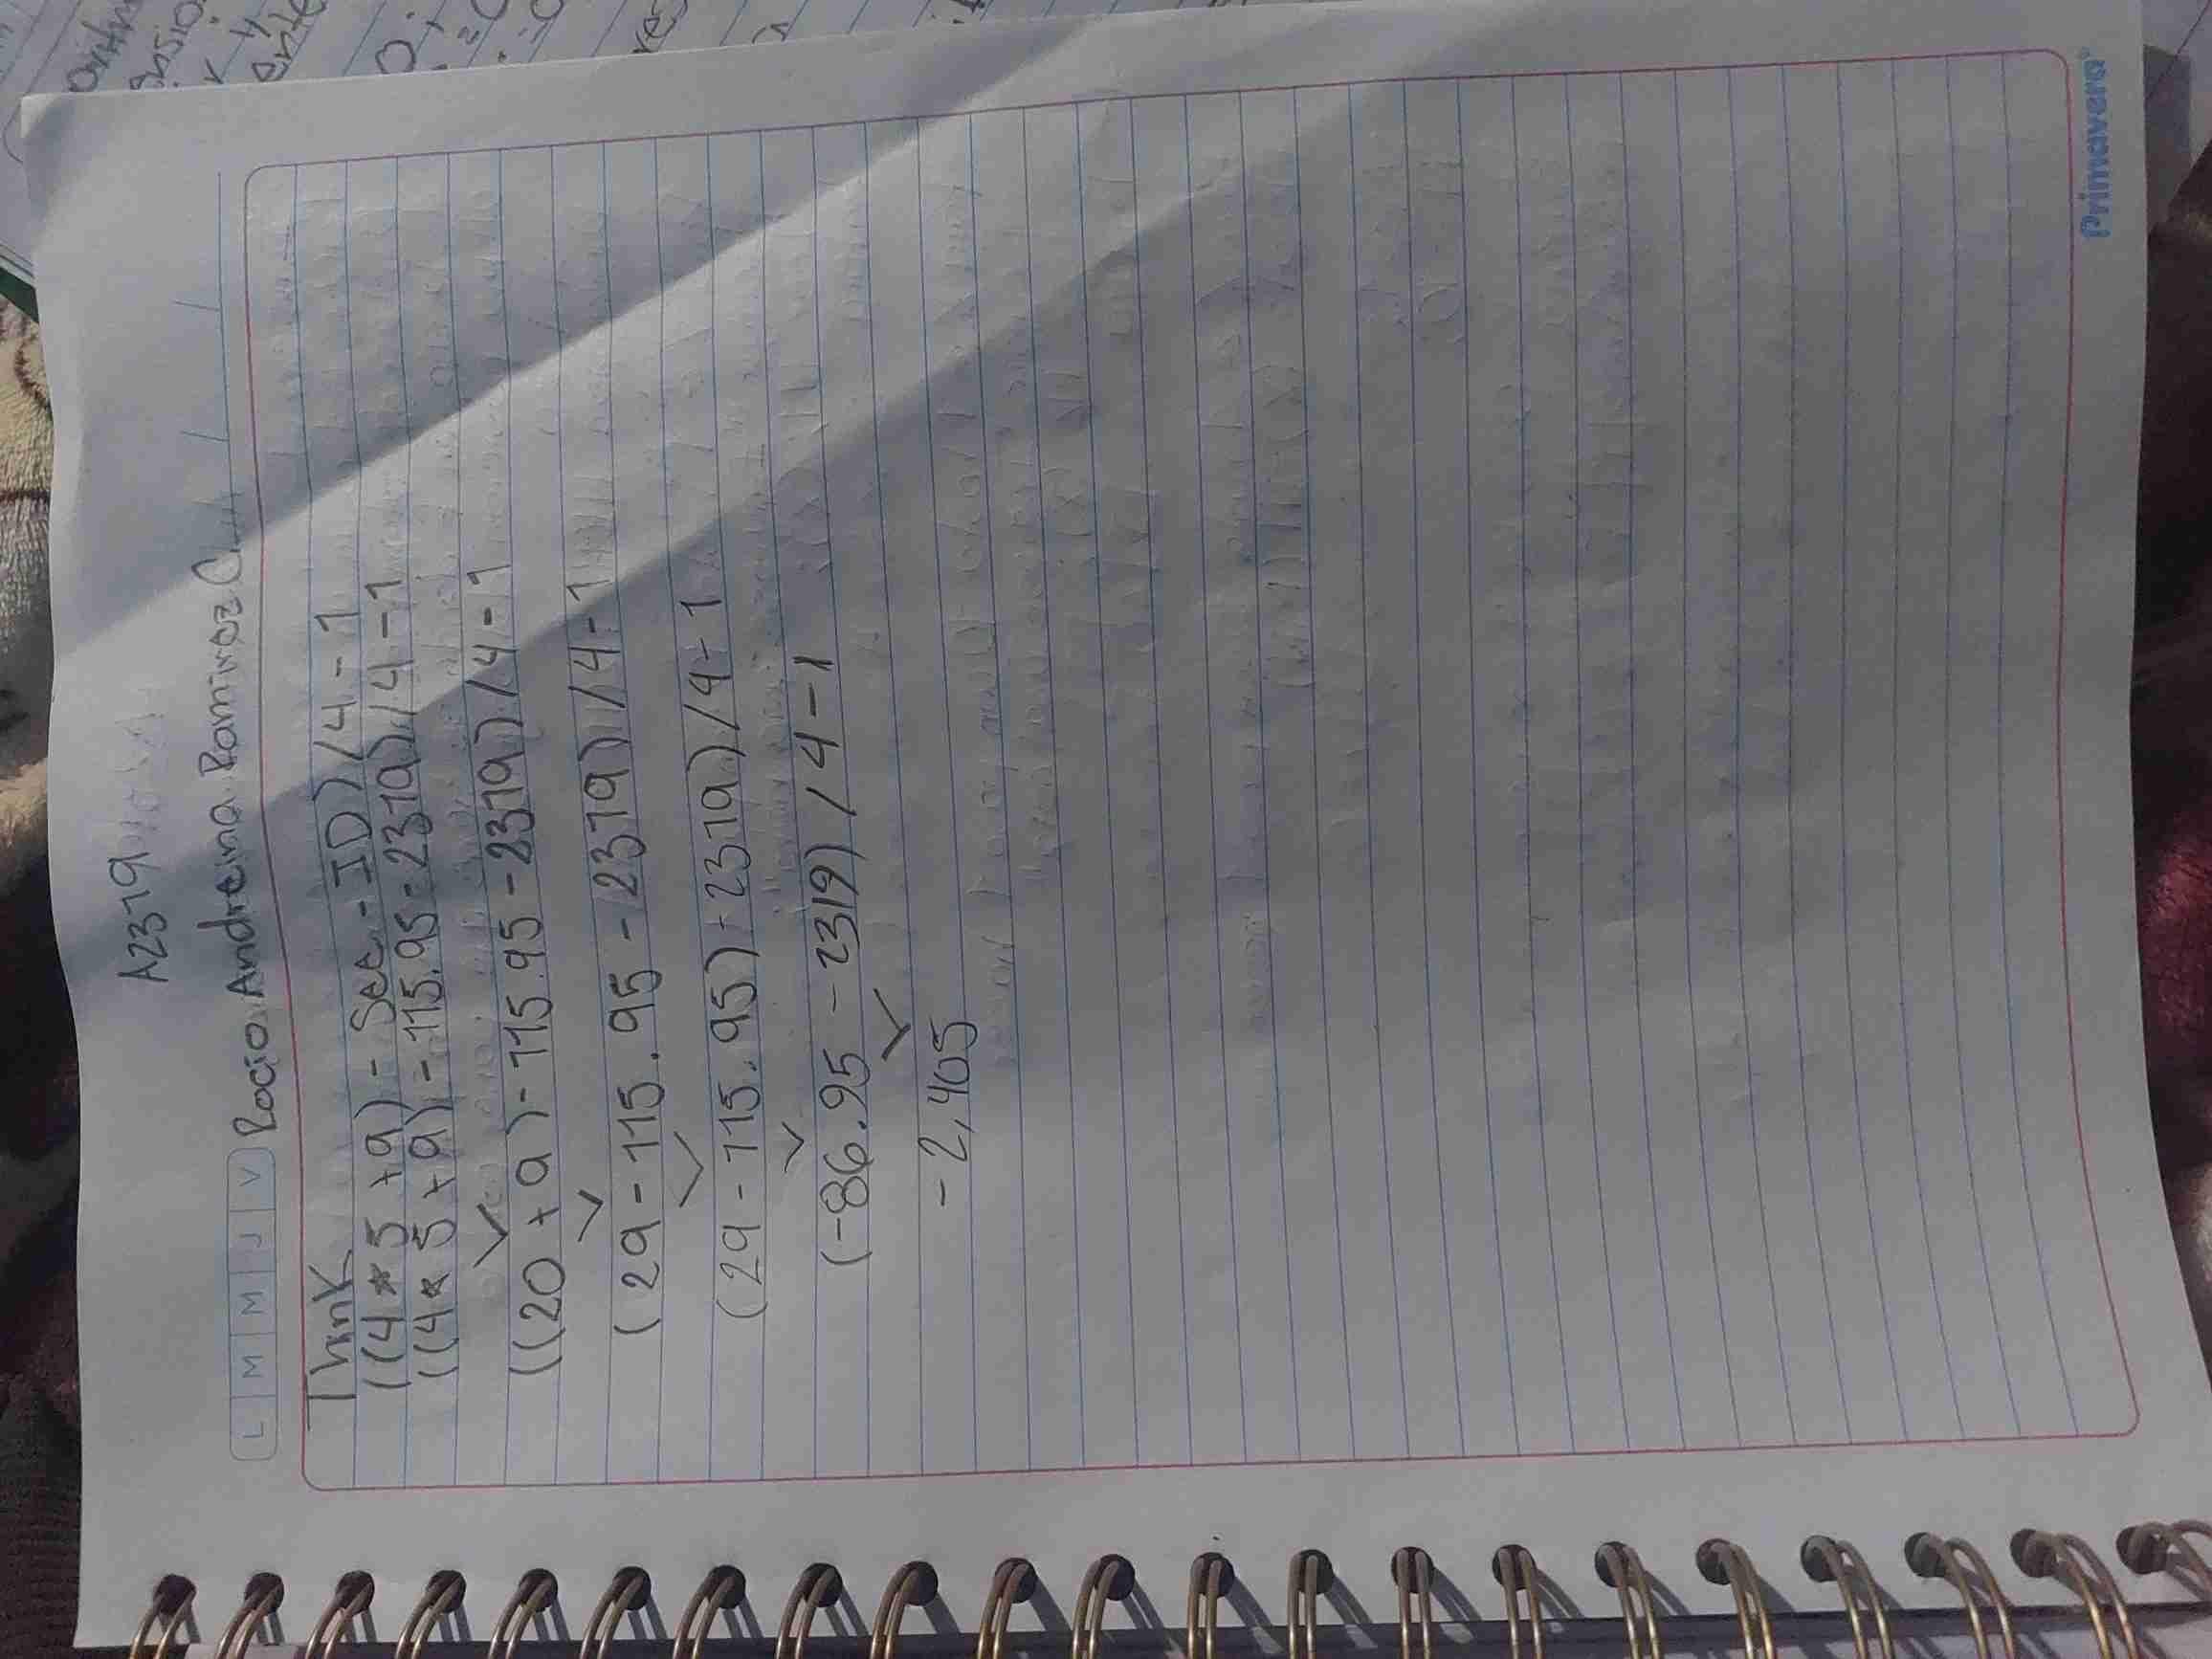 A2319
L M M J V Rocio Andreina Ramirez
Think
((4*5+9)-Sec-ID)/4-1
((4*5+9)-115.95-2319)/4-1
((20+9)-115.95-2319)/4-1
(29-115.95-2319)/4-1
(29-115.95)-2319)/4-1
(-86.95-2319)/4-1
-2,405
Primavera